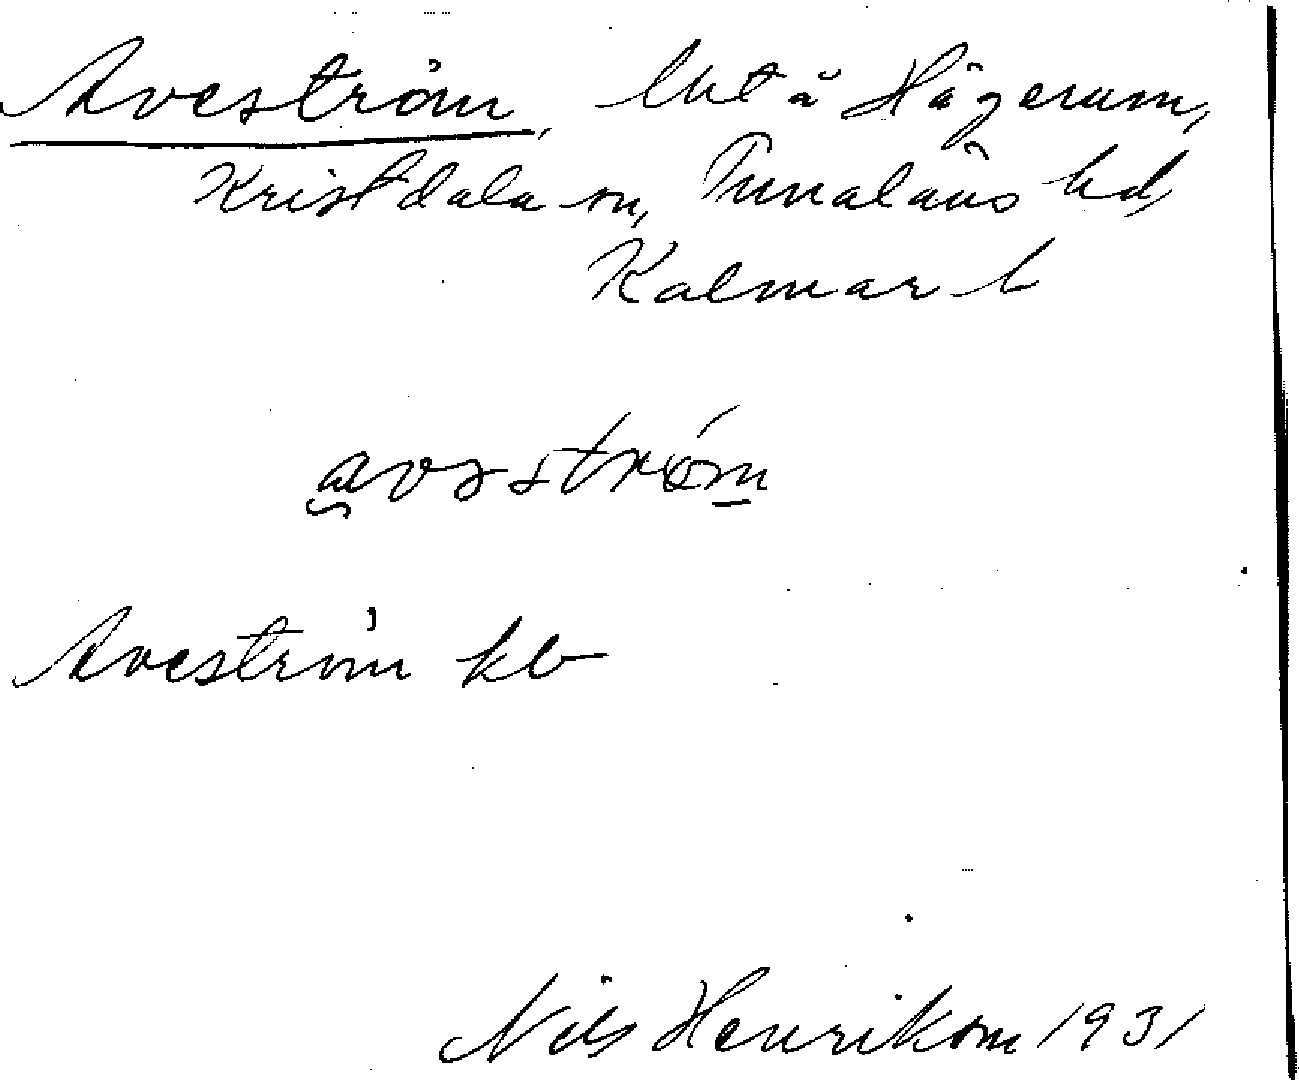 Aveström, lht å Hägerum,
Kristdala sn, Tunaläns hd,
Kalmar l
avəström
Aveström kb
Nils Henrikson 1931